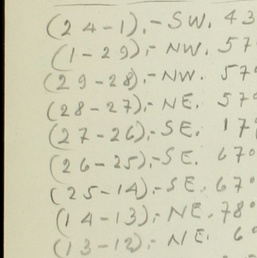 (24-1).- SW. 43
(1-29).- NW. 57
(29-28).- NW. 57°
(28-27).- NE. 57°
(27-26).- SE. 17
(26-25).- SE. 67°
(25-14).- SE. 67°
(14-13).- NE. 78°
(13-12).- NE. 6°